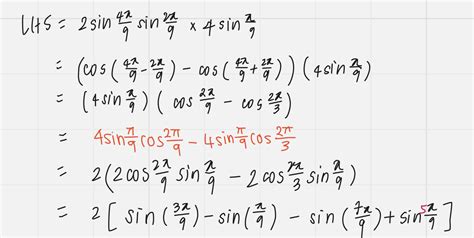 LHS = 2sin 4π/9 sin 2π/9 × 4sin π/9
= (cos (4π/9 - 2π/9) - cos (4π/9 + 2π/9)) (4sin π/9)
= (4sin π/9) ( cos 2π/9 - cos 2π/3)
= 4sin π/9 cos 2π/9 - 4sin π/9 cos 2π/3
= 2(2cos 2π/9 sin π/9 - 2cos 2π/3 sin π/9)
= 2[ sin (3π/9) - sin(π/9) - sin (7π/9) + sin 5π/9 ]